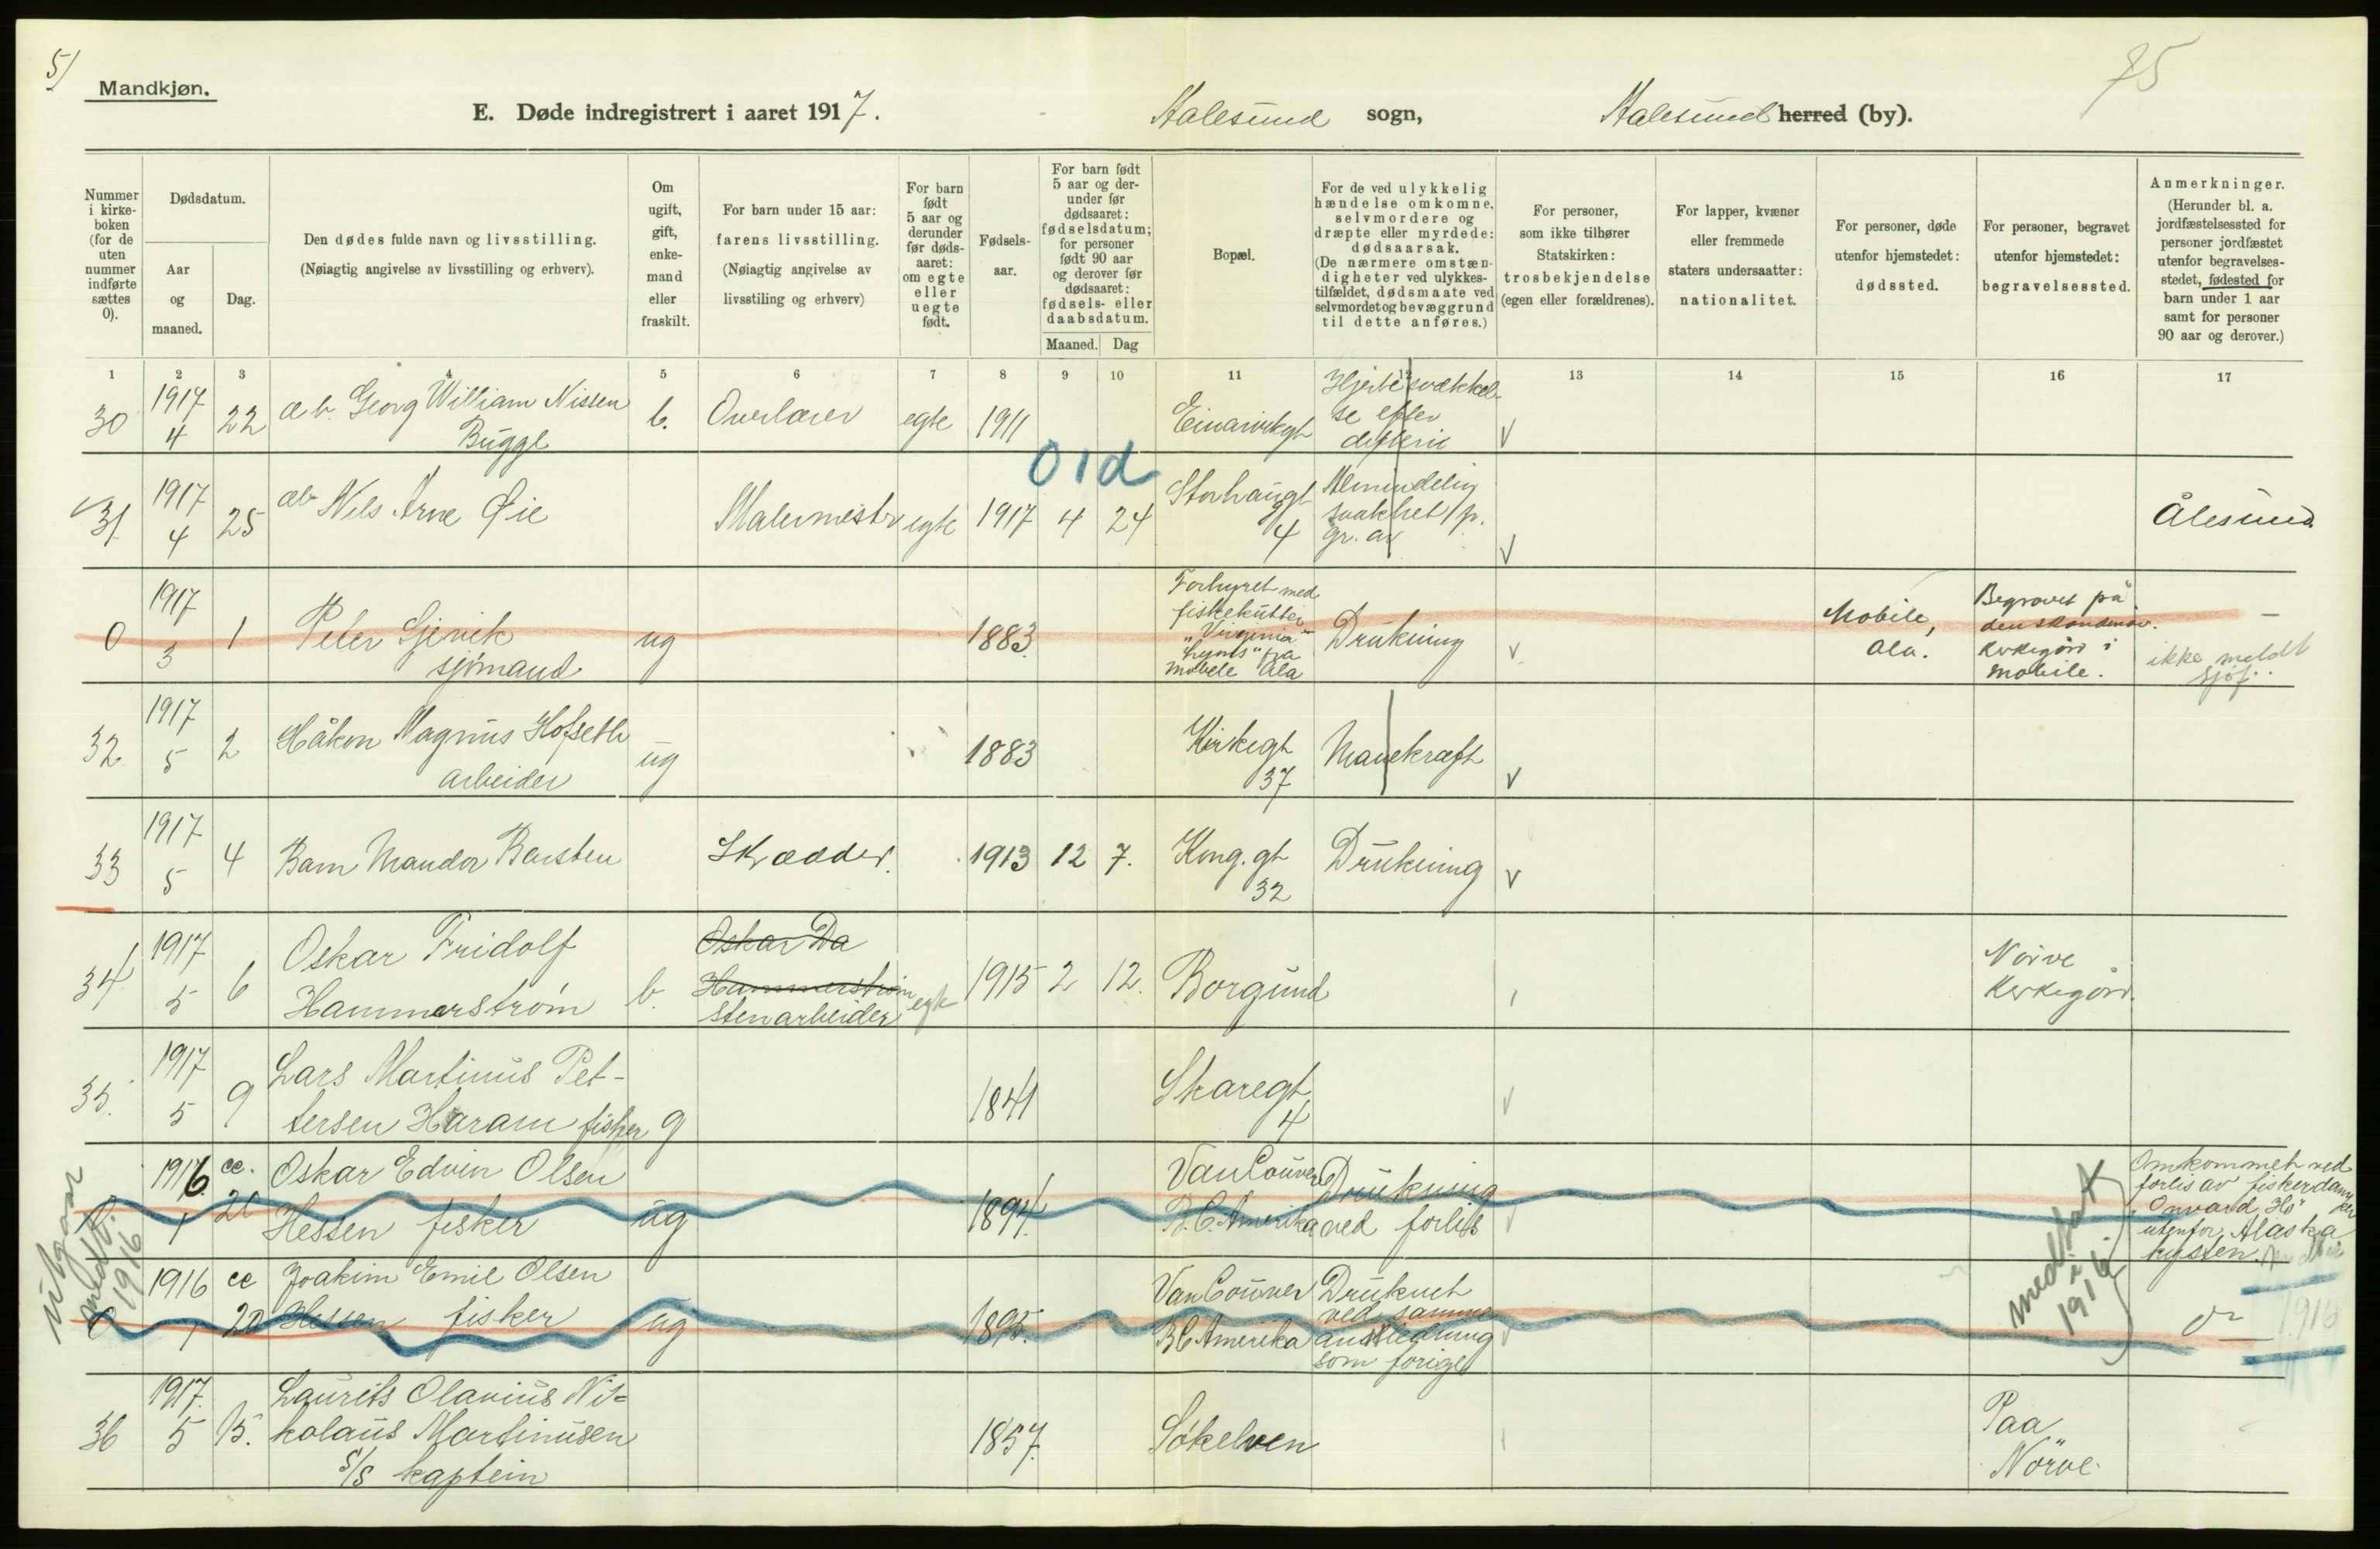 5)
75
Mandkjøn.
E. Døde indregistrert i aaret 1917.
Aalesund sogn,
Aalesund herred (by).
Nummer
i kirke-
boken
(for de
uten
nummer
indførte
sættes
0).
Dødsdatum.
Aar
og
maaned.
Dag.
Den dødes fulde navn og livsstilling.
(Nøiagtig angivelse av livsstilling og erhverv).
Om
ugift,
gift,
enke-
mand
eller
fraskilt.
For barn under 15 aar:
farens livsstilling.
(Nøiagtig angivelse av
livsstiling og erhverv)
For barn
født
5 aar og
derunder
før døds-
aaret:
om egte
eller
uegte
født.
Fødsels-
aar.
For barn født
5 aar og der-
under før
dødsaaret:
fødselsdatum;
for personer
født 90 aar
og derover før
dødsaaret:
fødsels- eller
daabsdatum.
Maaned. Dag
Bopæl.
For de ved ulykkelig
hændelse omkomne,
selvmordere og
dræpte eller myrdede:
dødsaarsak.
(De nærmere omstæn-
digheter ved ulykkes-
tilfældet, dødsmaate ved
selvmordet og bevæggrund
til dette anføres.)
For personer,
som ikke tilhører
Statskirken:
trosbekjendelse
(egen eller forældrenes).
For lapper, kvæner
eller fremmede
staters undersaatter:
nationalitet.
For personer, døde
utenfor hjemstedet:
dødssted.
For personer, begravet
utenfor hjemstedet:
begravelsessted.
Anmerkninger.
(Herunder bl. a.
jordfæstelsessted for
personer jordfæstet
utenfor begravelses-
stedet, fødested for
barn under 1 aar
samt for personer
90 aar og derover.)
1 2 3 4 5 6 7 8 9 10 11 12 13 14 15 16 17
30
1917
4
22
Georg William Nissen
Bugge
b.
Overlærer
egte
1911
Hjertesvækkel-
se efter
difteri
√
31
1917
4
25
Nils Arne Øie
Malermester
egte
1917 4 24
0 1 d
Storhaugt
4
Almindelig
svakhet p.
gr. av
√
Ålesund
0
1917
3
1
Peter Gjevik
sjømand
ug
1883
Forhyret med
fiskekutter
"Virginia
fra
Mobile Ala
Drukning
√
Mobile,
Ala.
Begravet på
den skandinav.
kirkegård i
Mobile.
—
ikke meldt
sjøf.
32
1917
5
2
Håkon Magnus Hofseth
arbeider
ug
1883
Kirkegt
37
Mavekræft
√
33
1917
5
4
Barn Mandor Barsten
Skrædder.
1913 12 7.
Kong. gt
32
Drukning
√
34
1917
5
6
Oskar Fridolf
Hammerstrøm
b.
Oskar Da
Hammerstrøm
stenarbeider
egte
1915 2 12.
Borgund
Nørve
Kirkegård.
35.
1917
5
9
Lars Martinus Pet-
tersen Haram fisker
g
1841
Skaregt
4
√
utgaar
medt.
1916
0
1916.
1
20
Oskar Edvin Olsen
Hessen fisker
ug
1894.
VanCouver
B.C. Amerika
Drukning
ved forlis
√
Omkommet ved
forlis av fiskerdamp
utenfor Alaska
kysten.
medtat
i
1916.
0
1916
1
20
Joakim Emil Olsen
Hessen fisker
ug
1895.
VanCouver
BC Amerika
Druknet
ved samme
anledning
som forige
√
1916
36
1917.
5
15.
Laurits Olavius Nik-
kolaus Martinusen
S/S kaptein
1857.
Søkelven
Paa
Nörve.